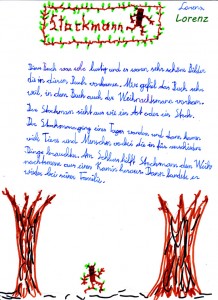 Lorenz
Lorenz
Stockmann
Das Buch war sehr lustig und es waren sehr schöne Bilder
die in diesem Buch vorkamen. Mir gefiel das Buch sehr
weil, in dem Buch auch der Weihnachtsmann vorkam.
Der Stockman sieht aus wie ein Ast oder ein Stock.
Der Stockmann ging eines Tages und dann kamen
viele Tiere und Menschen vorbei die in für verschiedene
Dinge brauchten. Am Schluss hilft Stockmann dem Weih
nachtsmann aus einem Kamin heraus. Dann landete er
wieder bei seiner Familie.